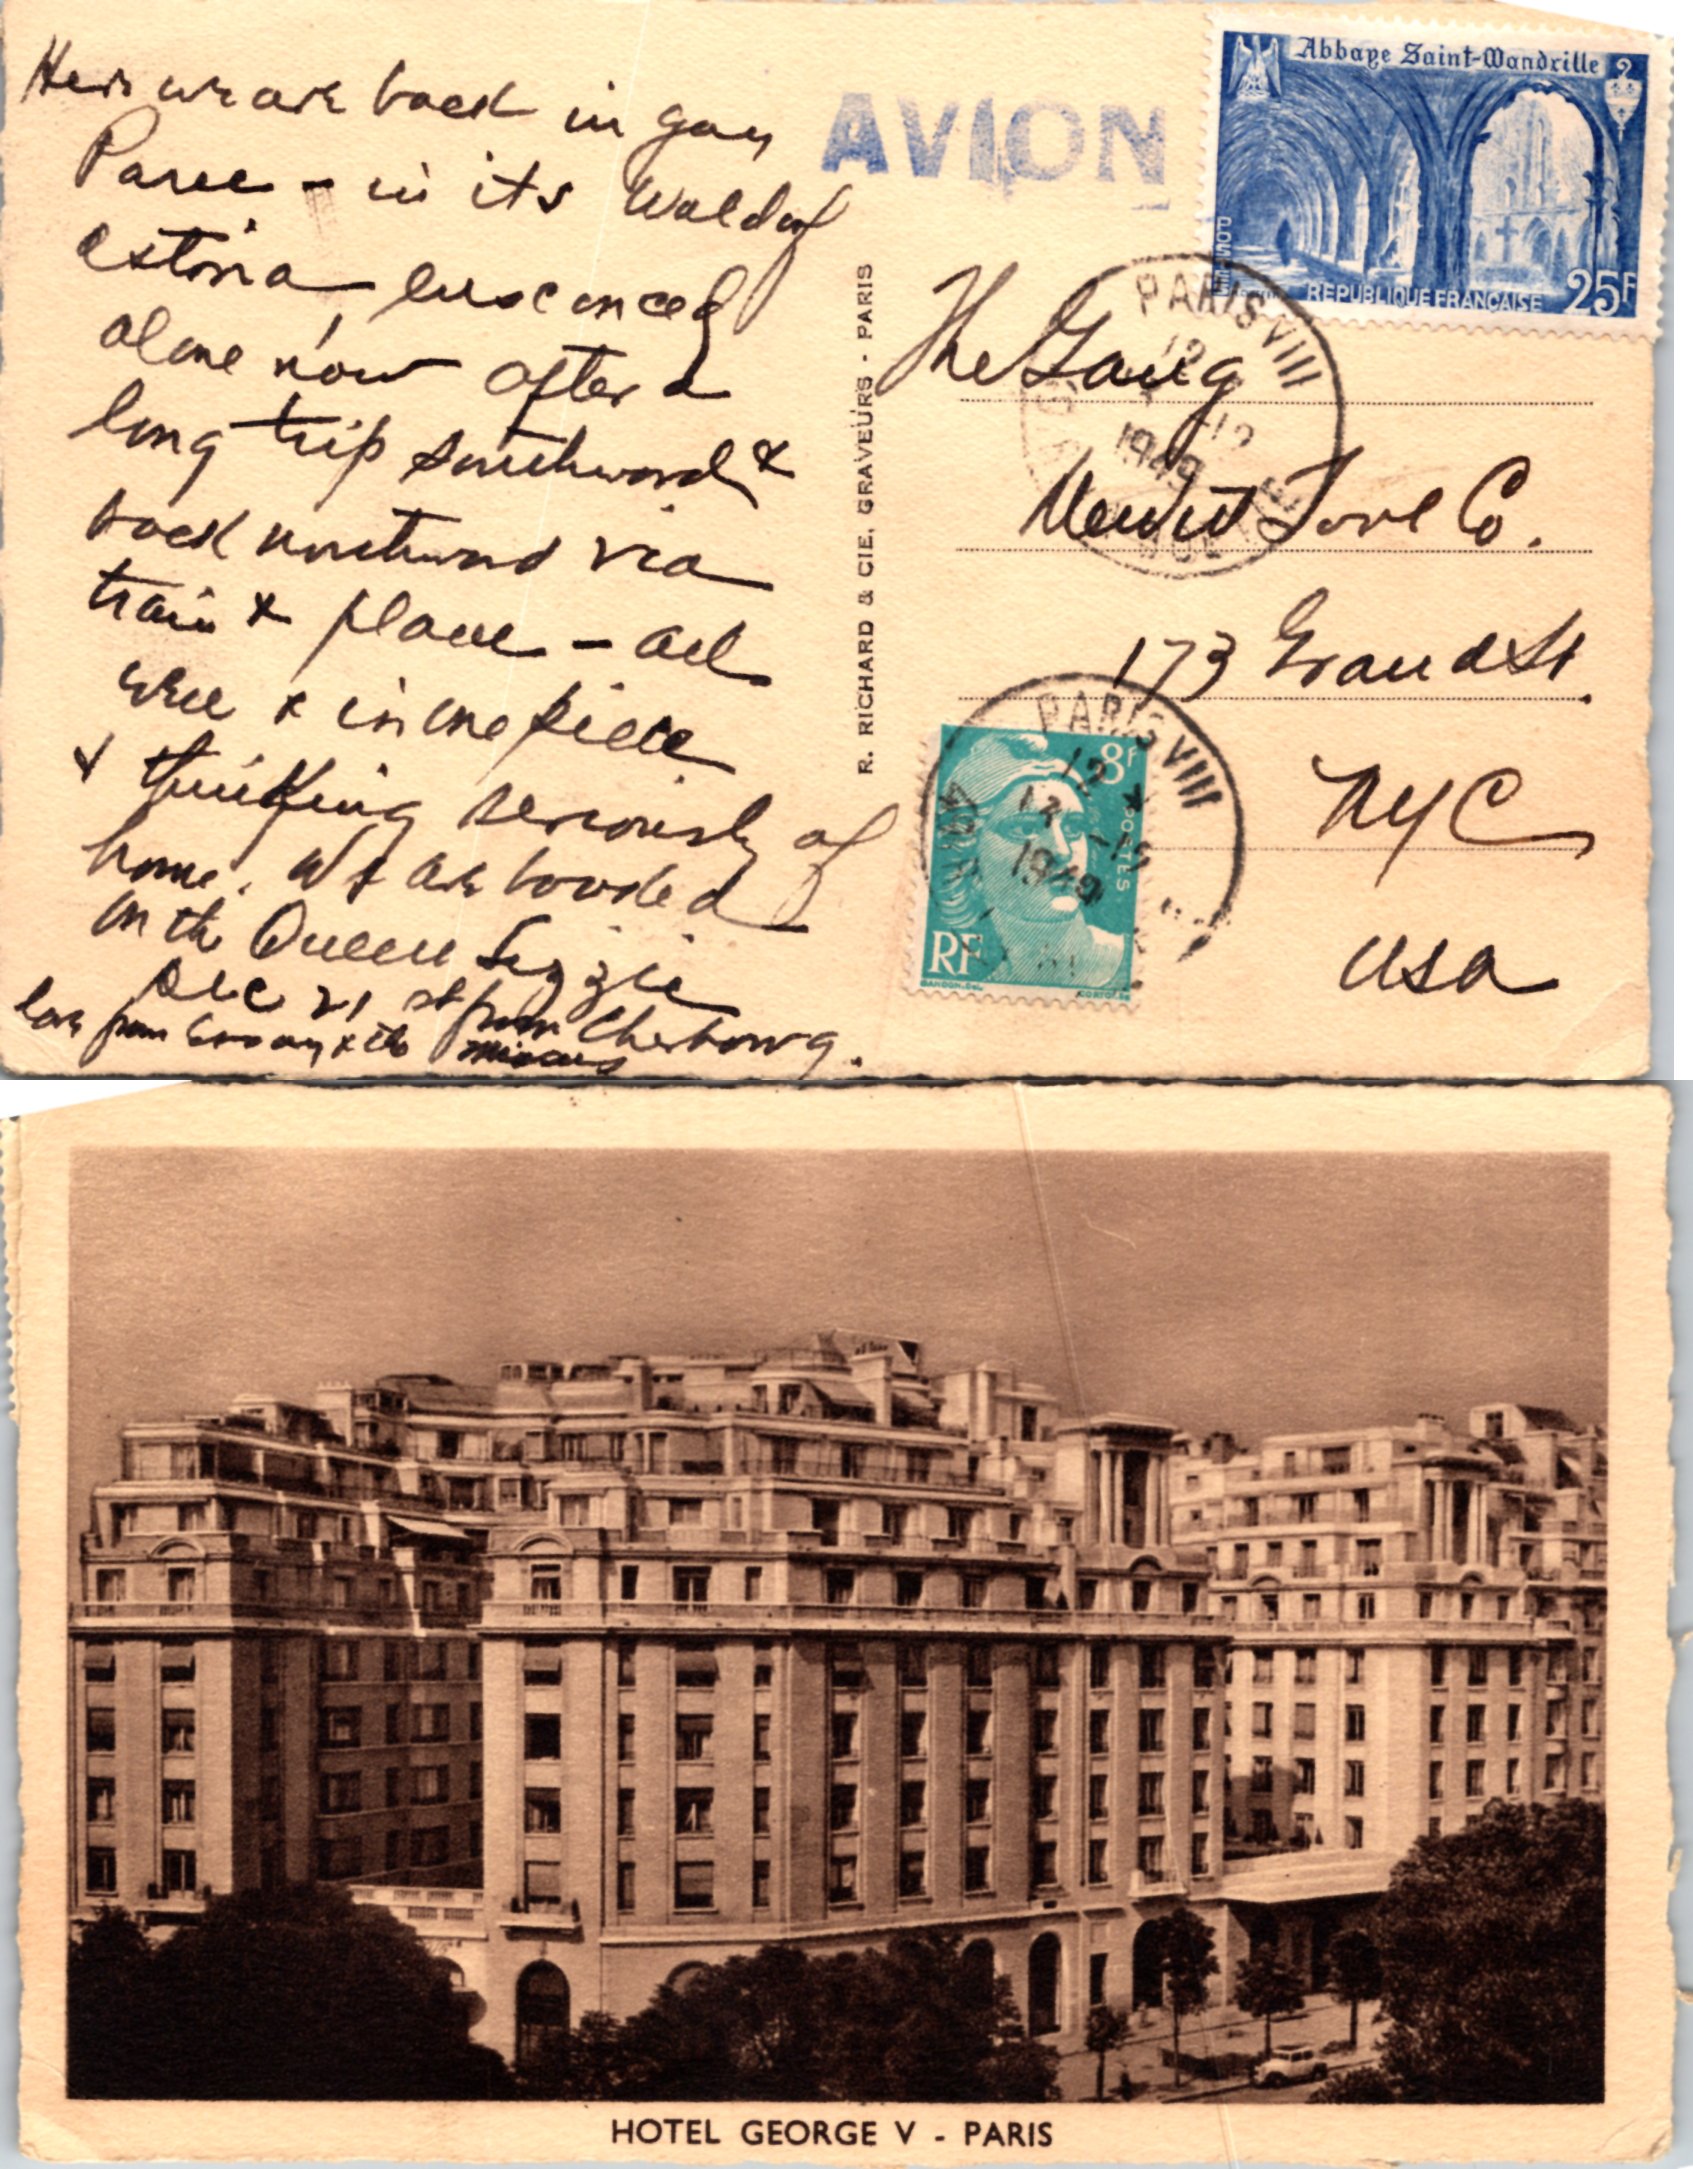 Here we are back in gay
Paree - in its Waldorf
Astoria ensconced
alone now after a
long trip southward &
back northward via
train & plane - all
well & in one piece
& thinking seriously of
home. We are booked
on the Queen Lizzie
Dec 21st from Cherbourg.
love from &
AVION
Abbaye Saint-Wandrille
POSTES
REPUBLIQUE FRANÇAISE 25F
PARIS VIII
12
1949
R. RICHARD & CIE. GRAVEURS - PARIS
The Gang
Tool Co.
173 Grand St.
NYC
USA
PARIS VIII
12
12 - 12
1949
8F
POSTES
RF
GANDON. DEL
CORTOT. SC
HOTEL GEORGE V - PARIS